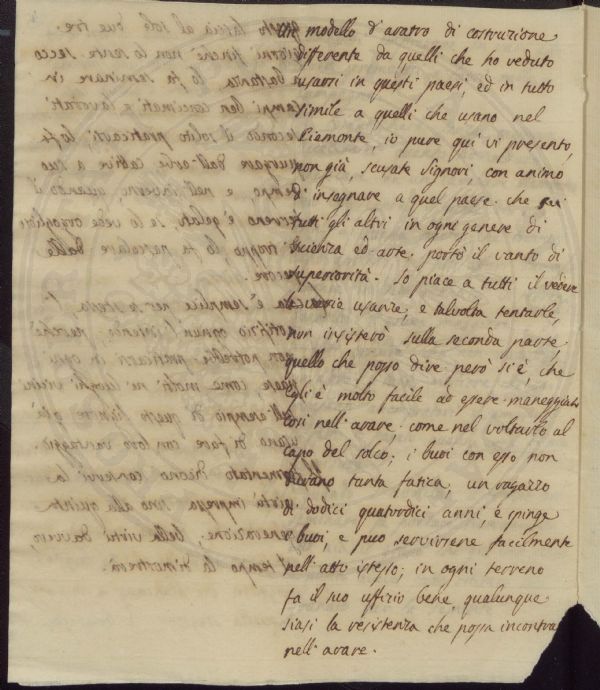 Un modello d'aratro di costruzione
differente da quelli che ho veduto
usarsi in questi paesi, ed in tutto
simile a quelli che usano nel
Piemonte, io pure quì vi presento,
non già, scusate Signori, con animo
d'insegnare a quel paese che su
tutti gli altri in ogni genere di
scienza ed arte portò il vanto di
superiorità. So piace a tutti il vedere
le varie usanze, e talvolta tentarle,
non insisterò sulla seconda parte,
quello che posso dire però si è, che
egli è molto facile ad essere maneggiato
così nell'arare, come nel voltarlo al
capo del solco; i buoi con esso non
durano tanta fatica, un ragazzo
di dodici quatordici anni, e spinge
i buoi, e può servirsene facilmente
nell'atto istesso; in ogni terreno
fa il suo uffizio bene, qualunque
siasi la resistenza che possa incontra
nell'arare.